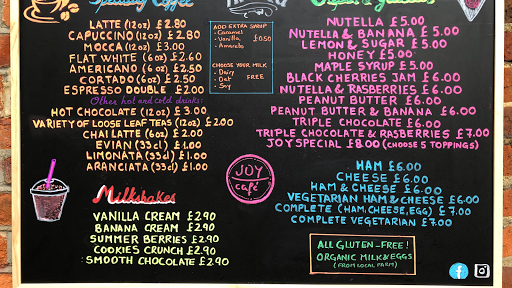 Speciality Coffee
LATTE (12oz) £2.80
CAPUCCINO (12oz) £2.80
MOCCA (12oz) £3.00
FLAT WHITE (6oz) £2.60
AMERICANO (6oz) £2.50
CORTADO (6oz) £2.50
ESPRESSO DOUBLE £2.00
Other hot and cold drinks:
HOT CHOCOLATE (12oz) £3.00
VARIETY OF LOOSE LEAF TEAS (12oz) £2.00
CHAI LATTE (6oz) £2.00
EVIAN (33cl) £1.00
LIMONATA (33cl) £1.00
ARANCIATA (33cl) £1.00
Milkshakes
VANILLA CREAM £2.90
BANANA CREAM £2.90
SUMMER BERRIES £2.90
COOKIES CRUNCH £2.90
SMOOTH CHOCOLATE £2.90
ADD EXTRA SYRUP
- Caramel
- Vanilla £0.50
- Amareto
CHOOSE YOUR MILK
- Dairy
- Oat FREE
- Soy
JOY
café
NUTELLA £5.00
NUTELLA & BANANA £5.00
LEMON & SUGAR £5.00
HONEY £5.00
MAPLE SYRUP £5.00
BLACK CHERRIES JAM £6.00
NUTELLA & RASBERRIES £6.00
PEANUT BUTTER £6.00
PEANUT BUTTER & BANANA £6.00
TRIPLE CHOCOLATE £6.00
TRIPLE CHOCOLATE & RASBERRIES £7.00
JOY SPECIAL £8.00 (CHOOSE 5 TOPPINGS)
HAM £6.00
CHEESE £6.00
HAM & CHEESE £6.00
VEGETARIAN HAM & CHEESE £6.00
COMPLETE (HAM, CHEESE, EGG) £7.00
COMPLETE VEGETARIAN £7.00
ALL GLUTEN-FREE!
ORGANIC MILK & EGGS
(FROM LOCAL FARM)
f